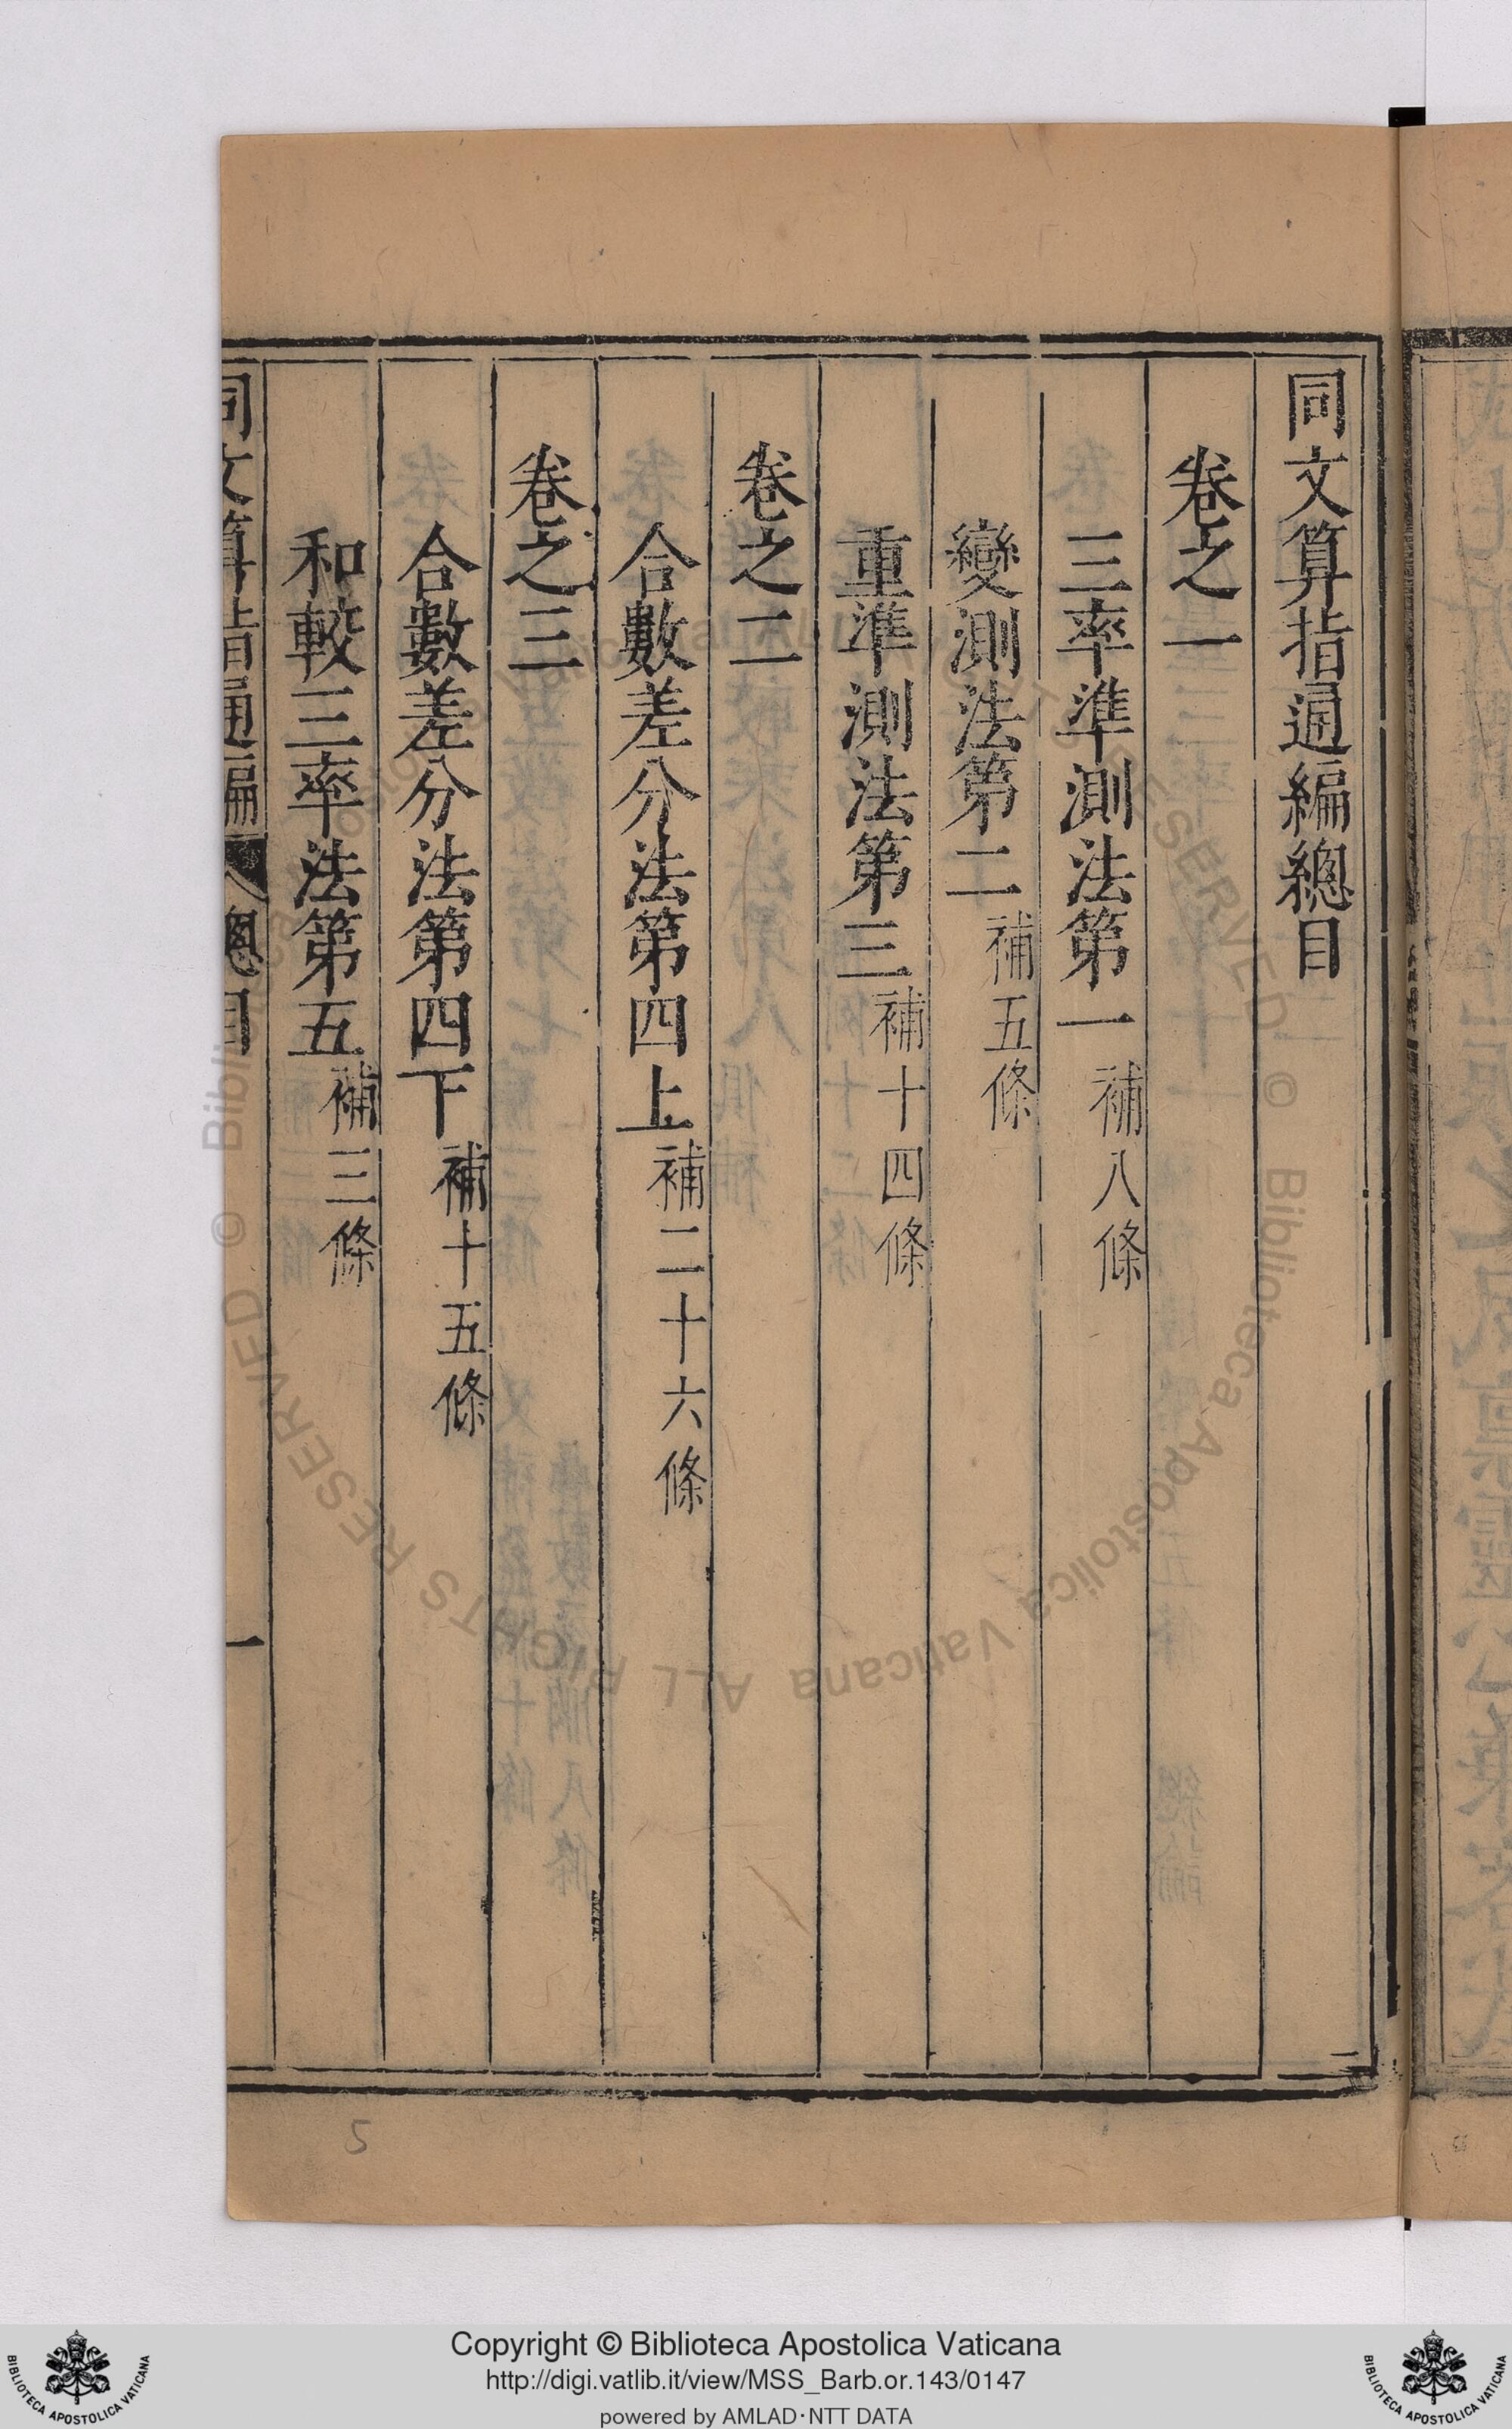 同文算指通編總目
卷之一
三率準測法第一補八條
變測法第二補五條
重準測法第三補十四條
卷之二
合數差分法第四上補二十六條
卷之三
合數差分法第四下補十五條
和較三率法第五補三條
同文算指通編 總目 一
5
Biblioteca Apostolica Vaticana ALL RIGHTS RESERVED ©
Copyright © Biblioteca Apostolica Vaticana
http://digi.vatlib.it/view/MSS_Barb.or.143/0147
powered by AMLAD·NTT DATA
BIBLIOTECA APOSTOLICA VATICANA
BIBLIOTECA APOSTOLICA VATICANA